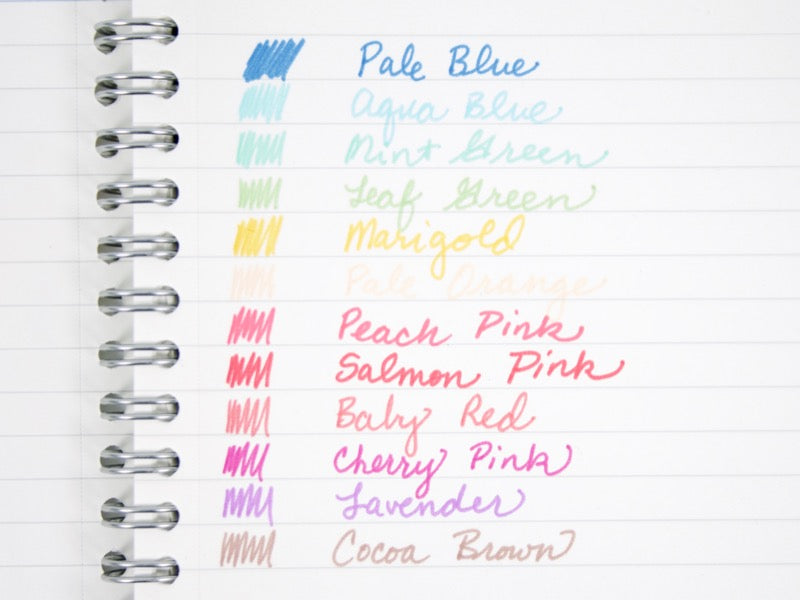 Pale Blue
Aqua Blue
Mint Green
Leaf Green
Marigold
Pale Orange
Peach Pink
Salmon Pink
Baby Red
Cherry Pink
Lavender
Cocoa Brown